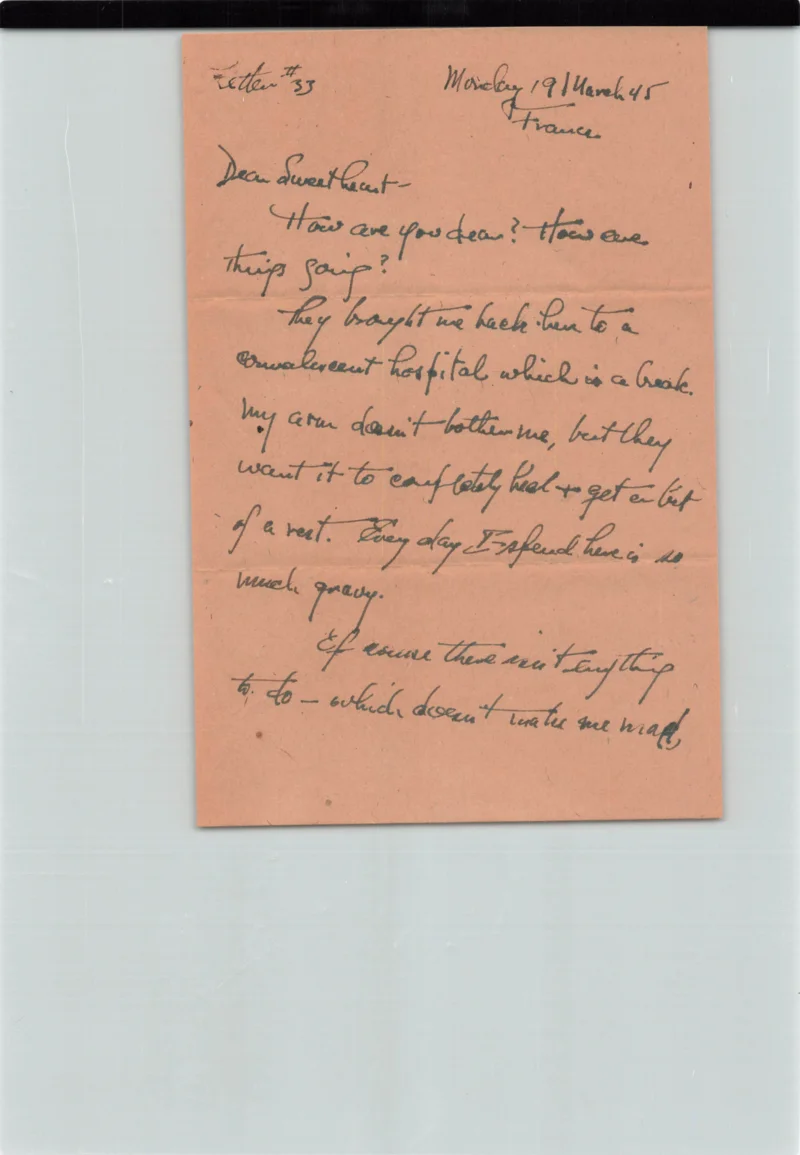 Letter #33
Monday 19 March 45
France
Dear Sweetheart -
How are you dear? How are
things going?
They brought me back here to a
convalescent hospital which is a break.
My arm doesn't bother me, but they
want it to completely heal + get a bit
of a rest. Every day I spend here is so
much gravy.
Of course there isn't anything
to do - which doesn't make me mad,